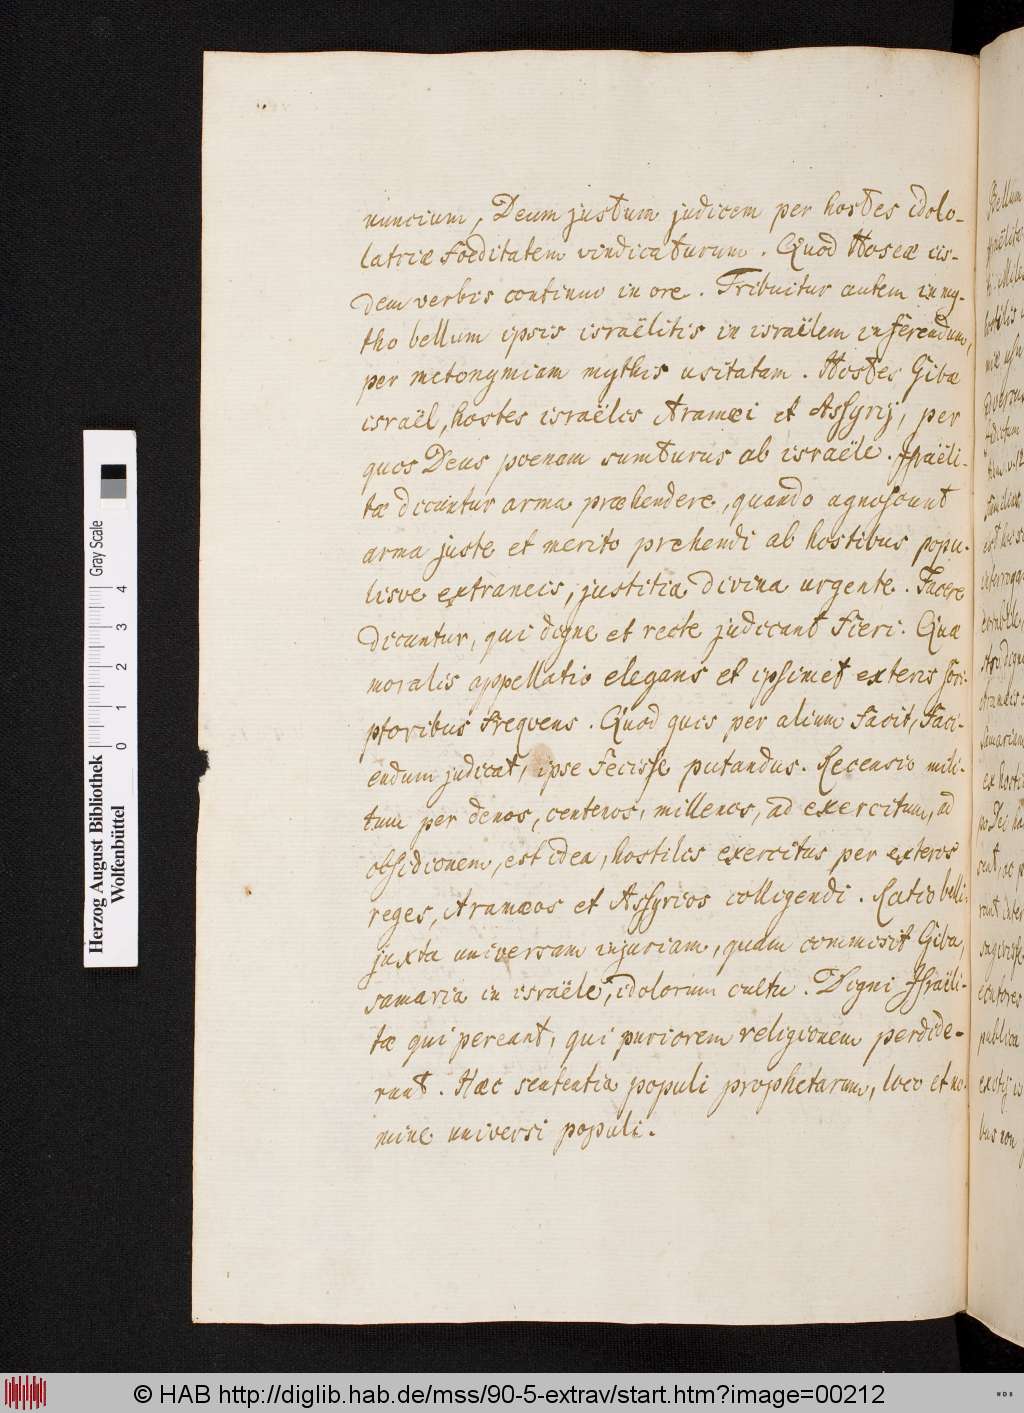 nuncium, Deum justum judicem per hostes idolo-
latriæ foeditatem vindicaturum. Quod Hoseæ iis-
dem verbis continuo in ore. Tribuitur autem in my-
tho bellum ipsis israëlitis in israëlem inferendum,
per metonymiam mythis usitatam. Hostes Gibæ
israël, hostes israëlis Aramæi et Assyrij, per
quos Deus poenam sumturus ab israële. Israëli-
tæ dicuntur arma præhendere, quando agnoscunt
arma juste et merito prehendi ab hostibus popu-
lisve extraneis, justitia divina urgente. Facere
dicuntur, qui digne et recte judicant fieri. Quæ
moralis appellatio elegans et ipsimet exteris scri-
ptoribus frequens. Quod quis per alium facit, faci-
endum judicat, ipse fecisse putandus. Recensio mili-
tum per denos, centenos, millenos, ad exercitum, ad
obsidionem, est idea, hostiles exercitus per exteros
reges, Aramæos et Assyrios colligendi. Ratio belli,
juxta universam injuriam, quam commisit Giba,
samaria in israële, idolorum cultu. Digni Israëli-
tæ qui pereant, qui puriorem religionem perdide-
runt. Hæc sententia populi prophetarum, loco et no-
mine universi populi.
Bellum
Herzog August Bibliothek
Wolfenbüttel
0 1 2 3 4
Gray Scale
© HAB http://diglib.hab.de/mss/90-5-extrav/start.htm?image=00212